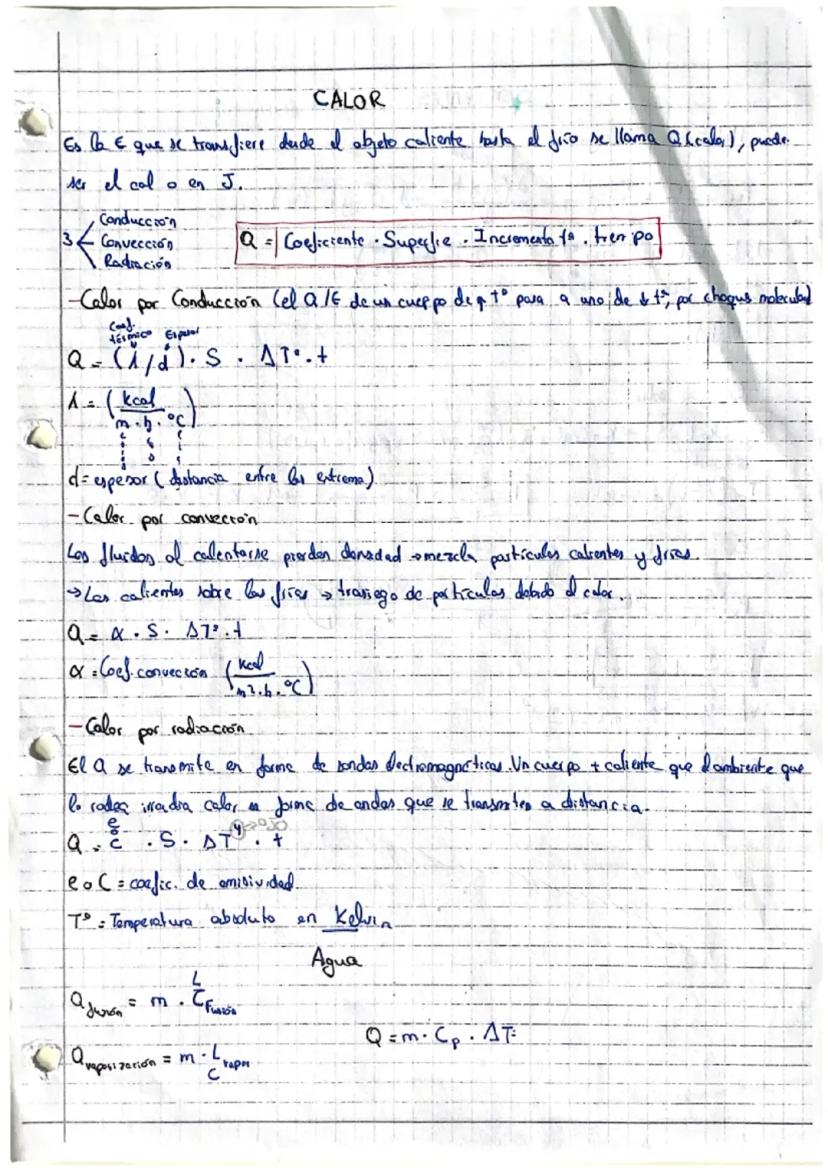 CALOR
Es la E que se transfiere desde el objeto caliente hasta el frío se llama Q (calor), puede
ser el cal o en J.
3 Conducción
Convección
Radiación
Q = Coeficiente · Superficie · Incremento tª · tiempo
- Calor por Conducción (el Q/E de un cuerpo de ↑ tº pasa a uno de ↓ tº, por choques molecular)
Coef. térmico Espesor
Q = (λ/d) · S · ΔTº · t
λ = (kcal / m · h · ºC)
d = espesor (distancia entre los extremos)
- Calor por convección
Los fluidos al calentarse pierden densidad → mezcla partículas calientes y frías.
→ Las calientes sobre las frías → trasiego de partículas debido al calor.
Q = α · S · ΔTº · t
α = Coef. convección (kcal / m2 · h · ºC)
- Calor por radiación
El Q se transmite en forma de ondas electromagnéticas. Un cuerpo + caliente que el ambiente que
lo rodea irradia calor en forma de ondas que se transmiten a distancia.
Q = e o C · S · ΔT⁴ · t
e o C = coefic. de emisividad
Tº = Temperatura absoluta en Kelvin
Agua
Q fusión = m · L C fusión
Q = m · Cp · ΔT
Q vaporización = m · L C vapor